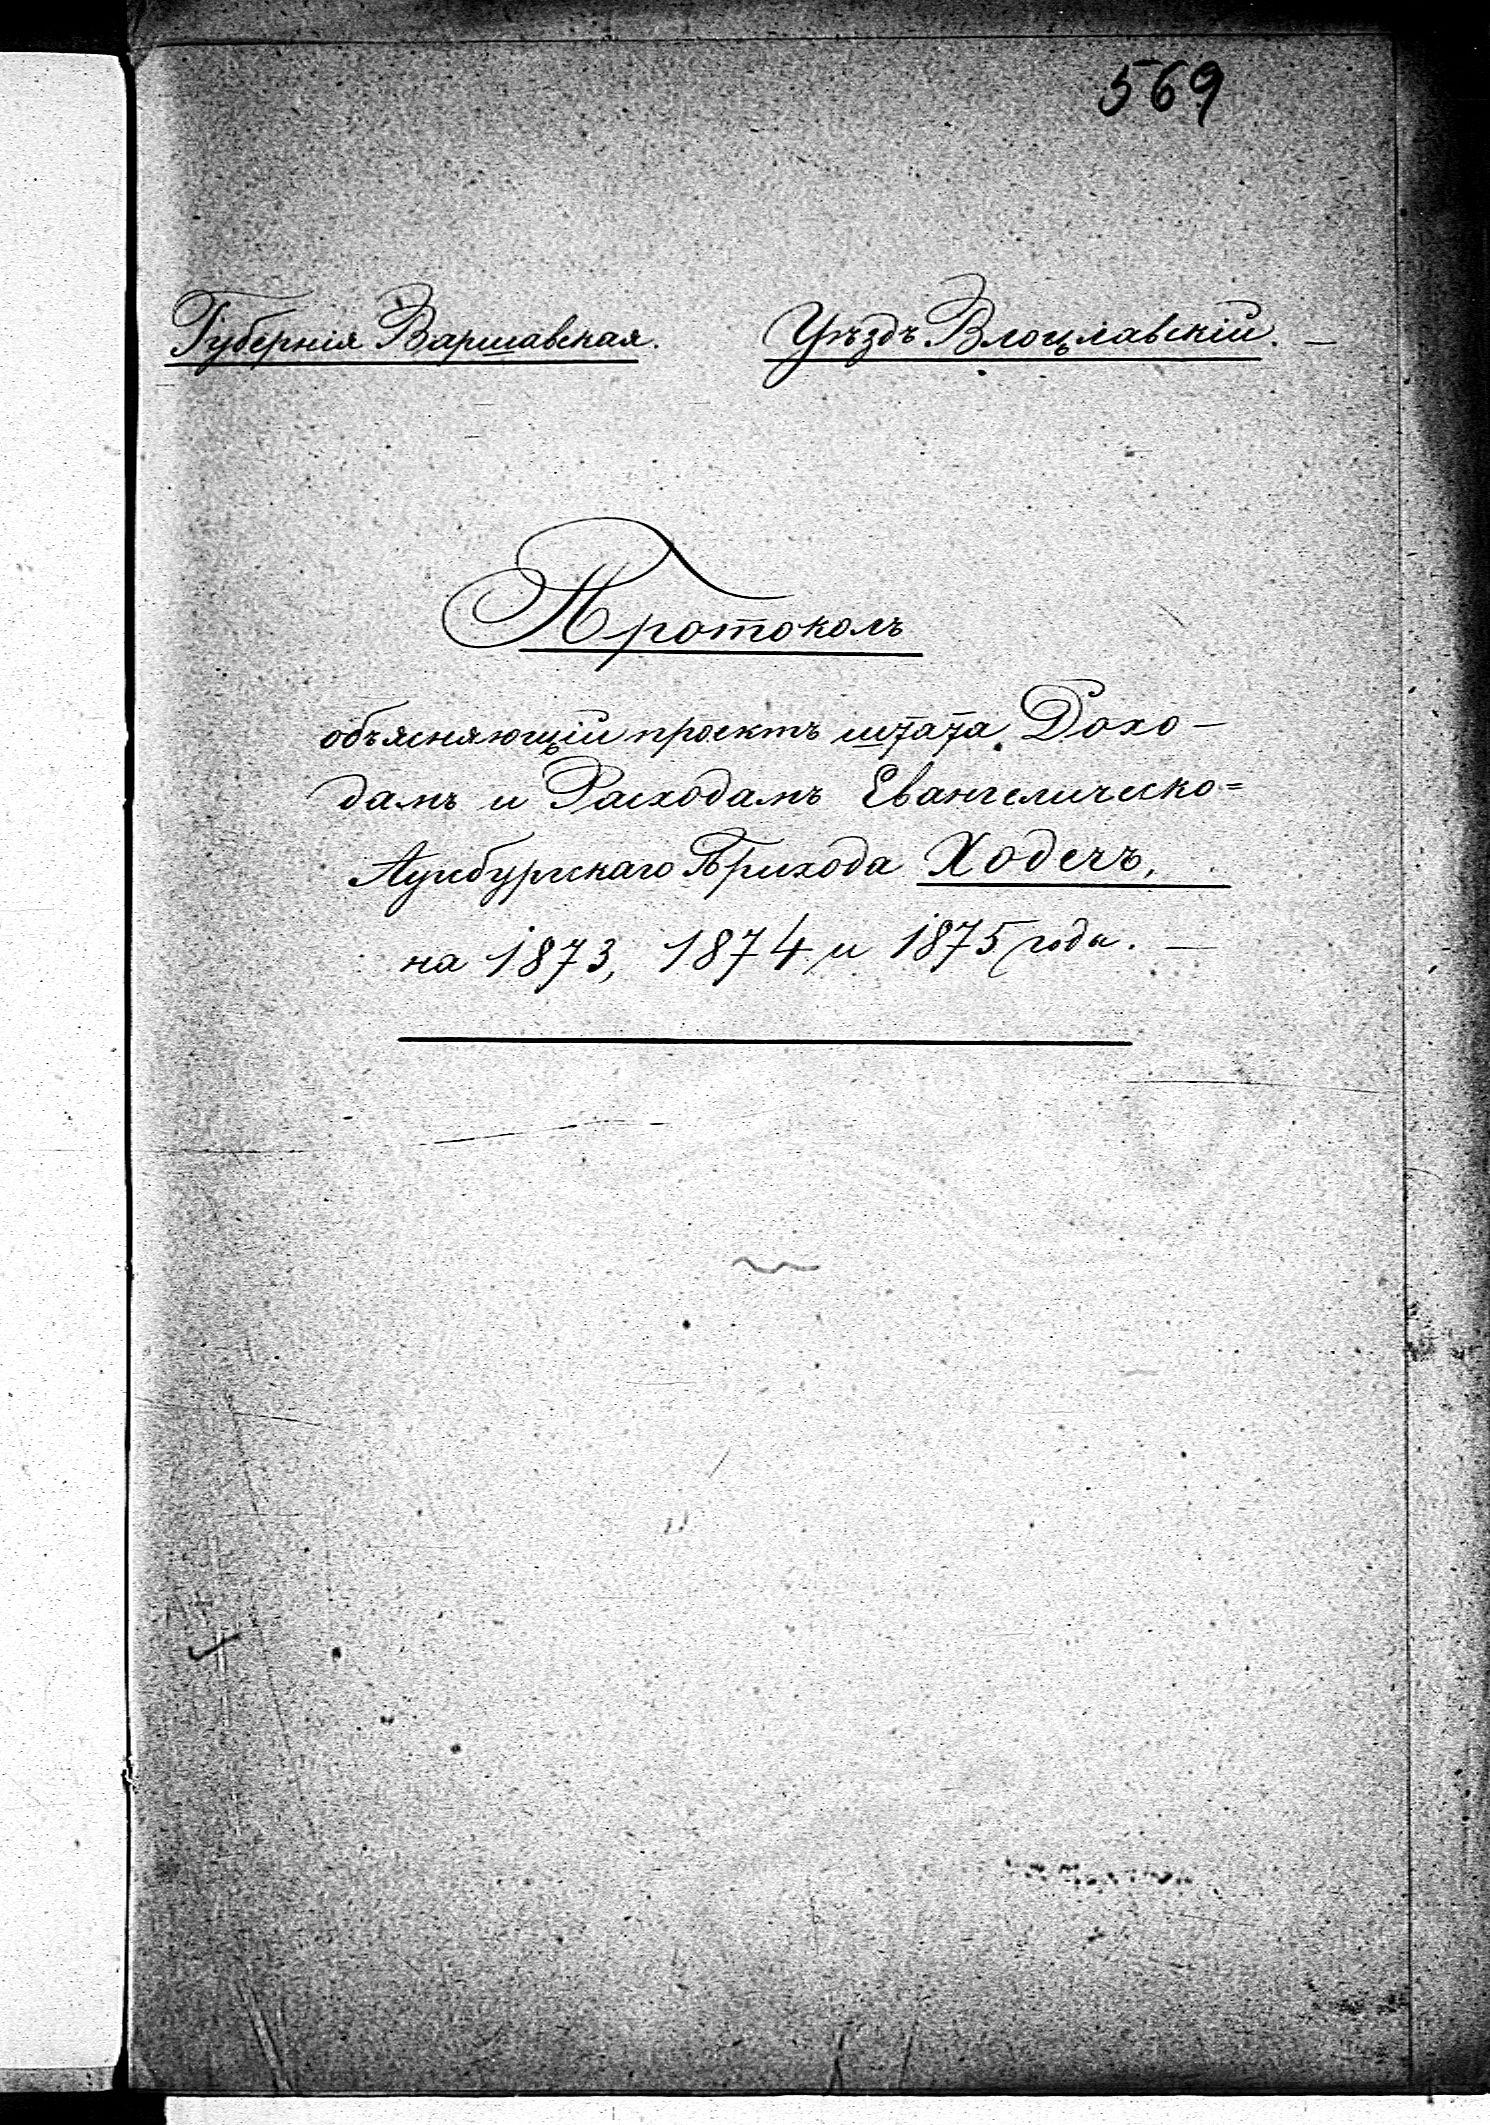 569
Губернія Варшавская. Уѣздъ Влоцлавскій. —
Протоколъ
объясняющій проектъ штата Дохо-
дамъ и Расходамъ Евангелическо=
Аугсбургскаго Прихода Ходечъ,
на 1873, 1874 и 1875 годы. —